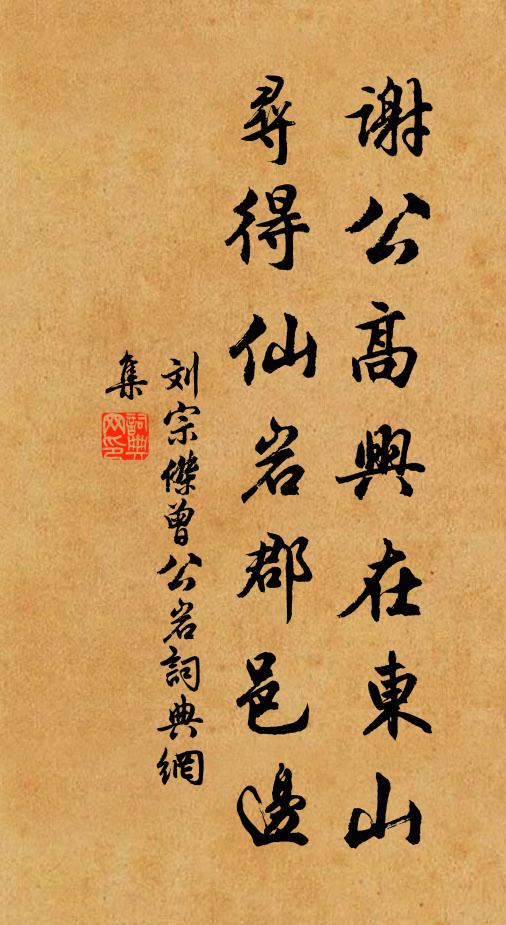 謝公高興在東山
尋得仙岩郡邑邊
刘宗傑曾公岩詞典網
集
詞典网印